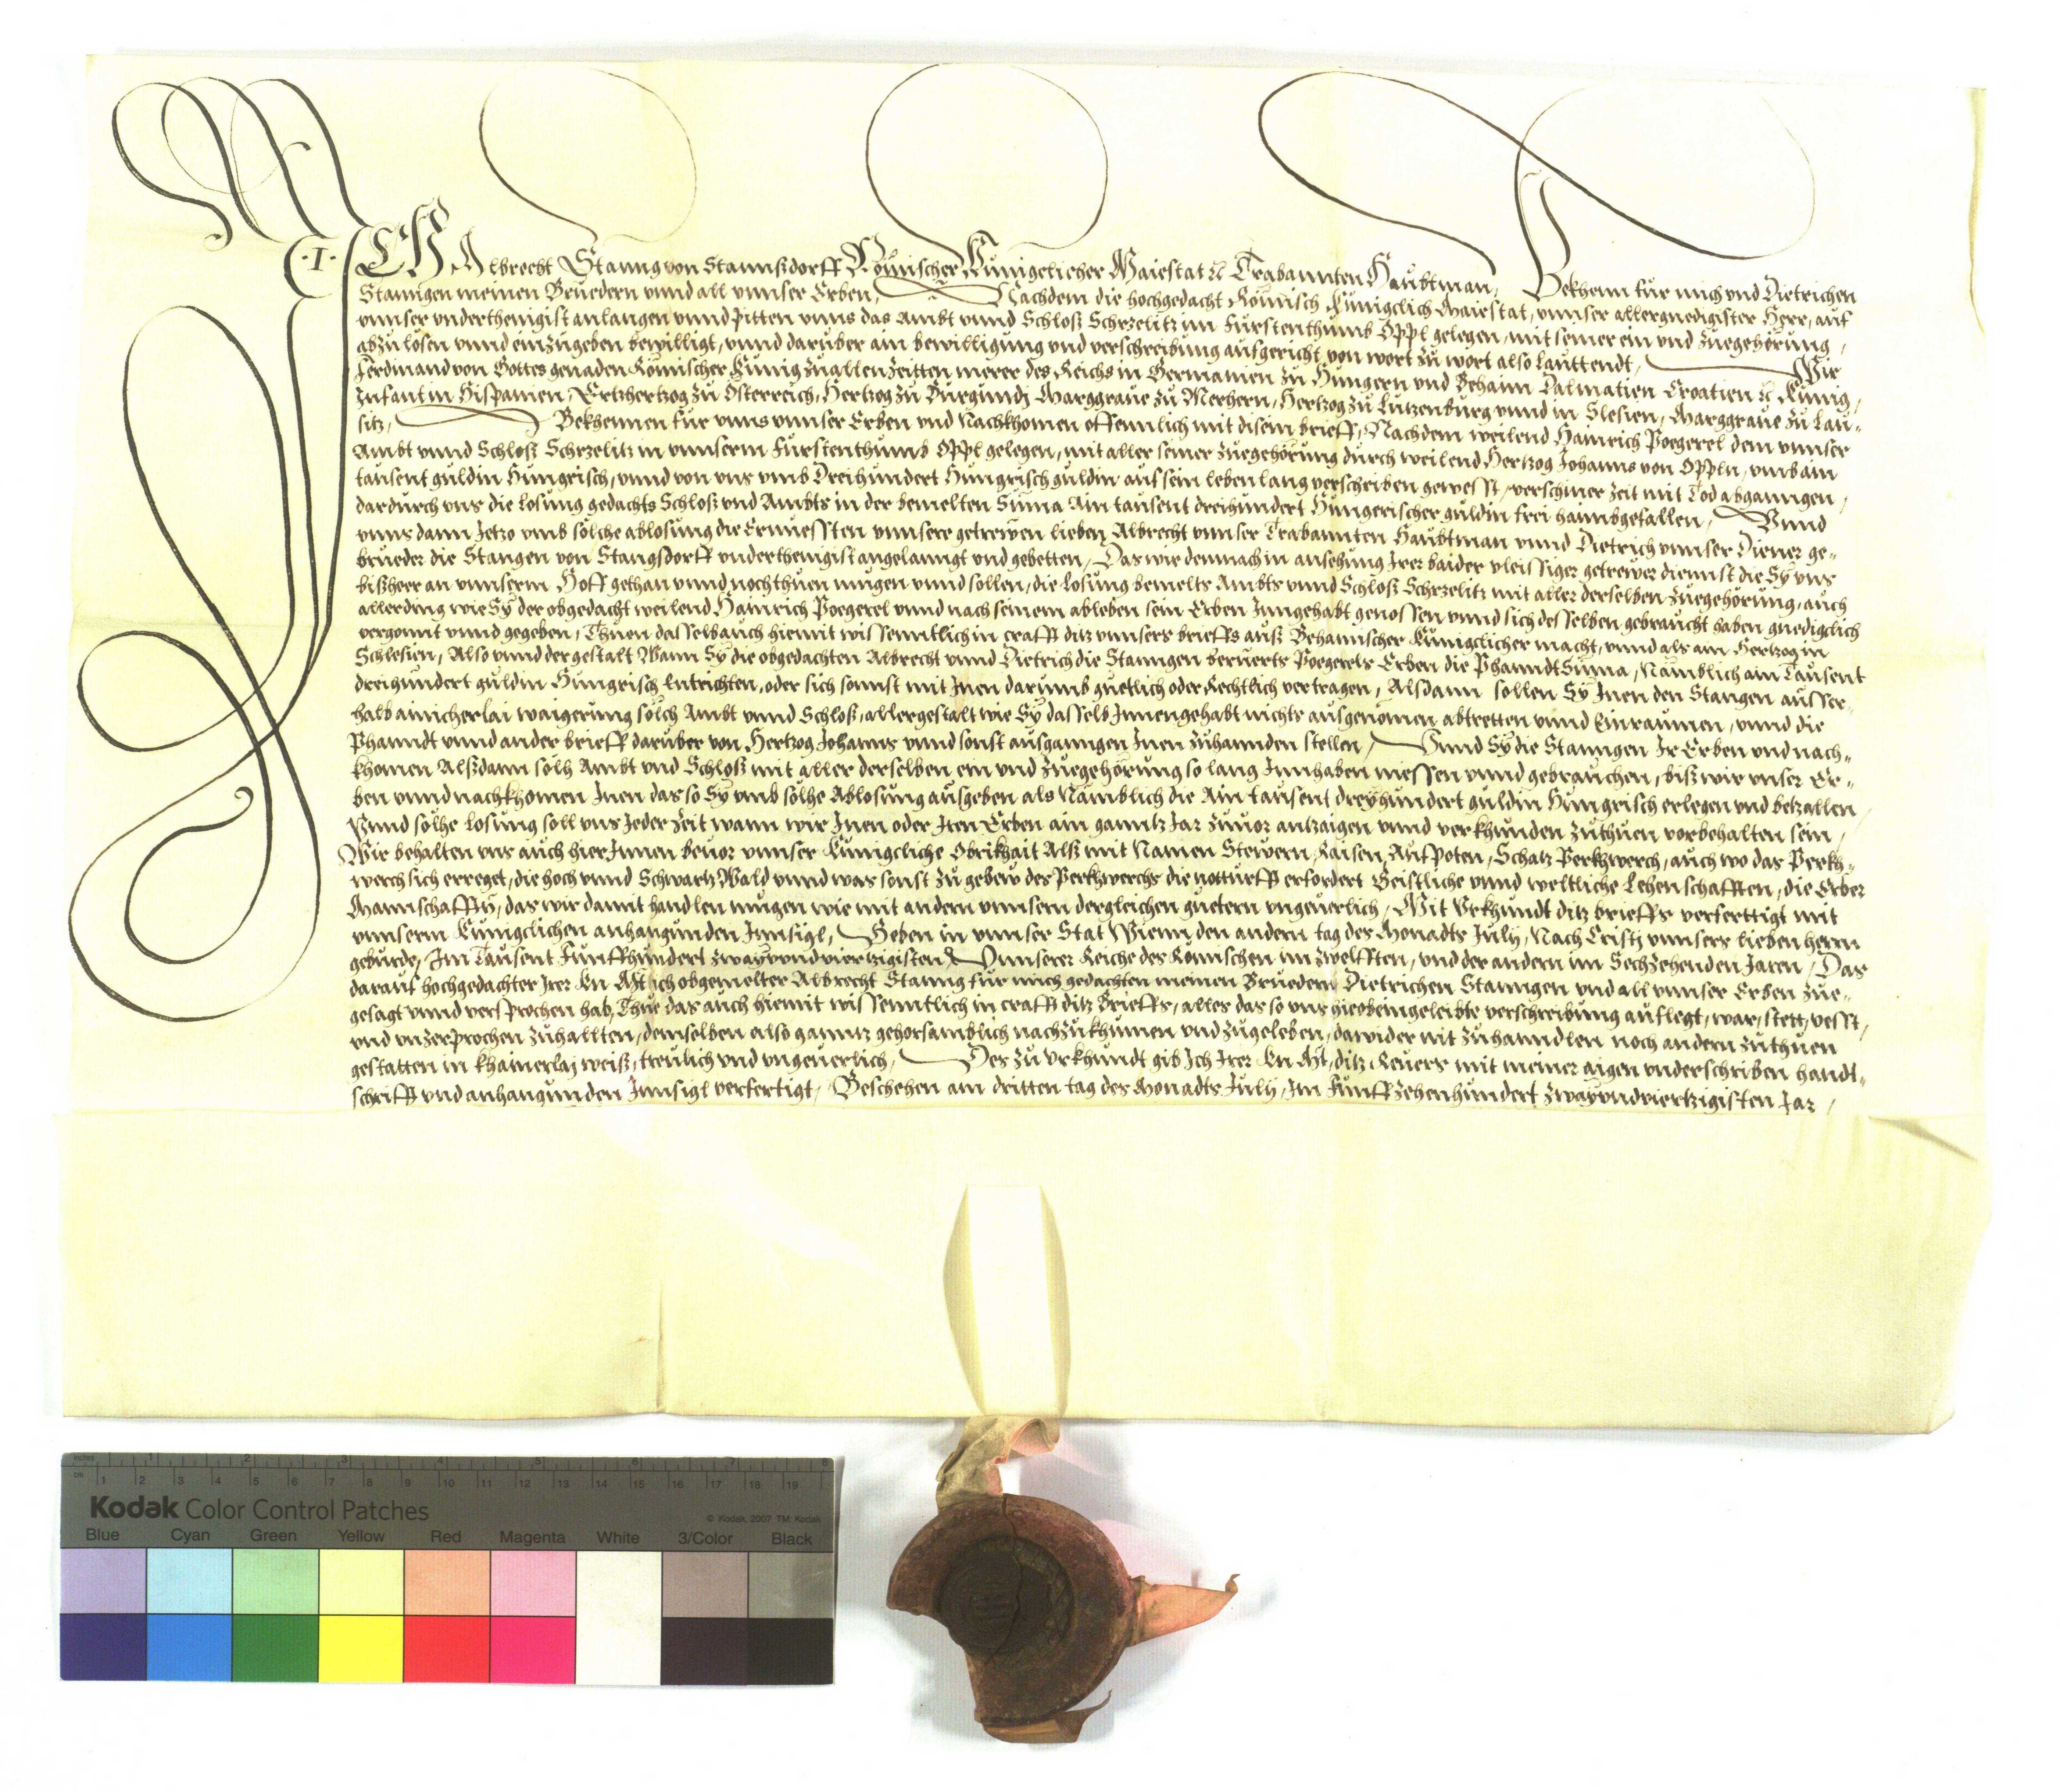 ICH Albrecht Stanng von Stannßdorff Römischer Kunigclicher Maiestat &c Trabannten Haubtman, Bekhenn für mich vnd Dietrichen
Stanngen meinen Bruedern vnnd all vnnser Erben, Nachdem die hochgedacht Römisch Kunigclich Maiestat, vnnser allergnedigister Herr, auf
vnnser vnderthenigist anlangen vnnd pitten vnns das Ambt vnnd Schloß Schrzelitz im Furstenthumb Oppl gelegen, mit seiner ein vnd zuegehörung,
abzulosen vnnd einzugeben bewilligt, vnnd daruber ain bewilligung vnd verschreibung aufgericht von wort zu wort also lauttendt, Wir
Ferdinand von Gottes genaden Römischer Kunig zu allen Zeitten merer des Reichs in Germanien zu Hungern vnd Behaim Dalmatien Croatien &c Kunig,
Infant in Hispanien, Ertzhertzog zu Osterreich, Hertzog zu Burgundj Marggraue zu Merhern, Hertzog zu Lutzenburg vnnd in Slesien, Marggraue zu Lau-
sitz, Bekhennen für vnns vnnser Erben vnd Nachkhomen offennlich mit disem brieff, Nachdem weilend Hainrich Poegerel dem vnnser
Ambt vnnd Schloß Schrzelitz in vnnserm Furstenthumb Oppl gelegen, mit aller seiner zuegehörung durch weilend Hertzog Johanns von Oppln, vmb ain
tausent guldin Hungrisch, vnnd von vns vmb Dreihundert Hungrisch guldin auf sein leben lang verschriben gewesst, verschiner zeit mit Tod abganngen,
dardurch vns die losung gedachts Schloß vnd Ambts in der bemelten Suma Ain tausent dreihundert Hungerischer guldin frei haimbgefallen, Vnnd
vnns dann Jetzo vmb solche ablosung die Ernuessten vnnsere getrewen lieben Albrecht vnnser Trabannten Haubtman vnnd Dietrich vnnser Diener ge-
brueder die Stangen von Stangsdorff vnderthenigist angelanngt vnd gebetten, Das wir demnach in ansehung Irer baider vleissiger getrewer diennst die Sy vns
bißherr an vnnserm Hoff gethan vnnd noch thuen mugen vnnd sollen, die losung bemelts Ambts vnnd Schloß Schrzelitz mit aller derselben zuegehörung, auch
allerding wie Sy der obgedacht weilend Hainrich Poegerel vnnd nach seinem ableben sein Erben Inngehabt genossen vnnd sich desselben gebraucht haben gnedigclich
vergonnt vnnd gegeben, Thuen dasselb auch hiemit wissenntlich in crafft ditz vnnsers brieffs auß Behamischer Kunigclicher macht, vnnd als ain Hertzog in
Schlesien, Also vnnd dergestalt Wann Sy die obgedachten Albrecht vnnd Dietrich die Stanngen beruerts Poegerels Erben die Phanndt Suma, Namblich ain Tausent
dreihundert guldin Hungrisch Entrichten, oder sich sonnst mit Inen darumb guetlich oder Rechtlich vertragen, Alsdann sollen Sy Inen den Stangen ausser-
halb ainicherlai waigerung solch Ambt vnnd Schloß, allergestalt wie Sy dasselb Innengehabt nichts ausgenomen abtretten vnnd Einraumen, vnnd die
Phanndt vnnd ander brieff daruber von Hertzog Johanns vnnd sonst ausganngen Inen zuhannden stellen, Vnnd Sy die Stanngen Ir Erben vnd nach-
khomen Alßdann solh Ambt vnd Schloß mit aller derselben ein vnd zuegehörung so lang Innhaben niessen vnnd gebrauchen, biß wir vnser Er-
ben vnnd nachkhomen Inen das so Sy vmb solhe Ablosung ausgeben als Namblich die Ain tausent dreyhundert guldin Hungrisch erlegen vnd betzallen
Vnnd solhe losung soll vns Jeder Zeit wann wir Inen oder Iren Erben ain ganntz Jar zuuor antzaigen vnnd verkhunden zuthuen vorbehalten sein,
Wir behalten vns auch hierInnen beuor vnnser Kunigcliche Obrikhait Alß mit Namen Stewern, Raisen, Aufpoten, Schatz Perkhwerch, auch wo das Perkh-
werch sich erreget, die hoch vnnd Schwartz Wald vnnd was sonst zu gebew des Perkhwerchs die notturfft erfordert Geistliche vnnd weltliche Lehenschafften, die Erber
Mannschafft, das wir damit handlen mugen wie mit andern vnnsern dergleichen guetern vngeuerlich, Mit Vrkhundt ditz brieffs verferttigt mit
vnnserm Kunigclichen anhangunden Innsigl, Geben in vnnser Stat Wienn den andern tag des Monadts July, Nach Cristj vnnsers lieben herrn
geburde, Im Tausent Funffhundert zwayvndviertzigisten, Vnnserer Reiche des Romischen im zwelfften, vnd der andern im Sechzehenden Jaren, Das
darauf hochgedachter Irer Kn Mt ich obgemelter Albrecht Stanng für mich gedachten meinen Bruedern Dietrichen Stanngen vnd all vnnser Erben zue-
gesagt vnnd versprochen hab, Thue das auch hiemit wissenntlich in crafft ditz Brieffs, alles das so vns hieobeingeleibte verschreibung auflegt, war, stett, vesst,
vnd vnzerprochen zuhallten, demselben also ganntz gehorsamblich nachzukhumen vnd zugeleben, darwider nit zuhanndlen noch andern zuthuen
gestatten in khainerlaj weiß, treulich vnd vngeuerlich, Des zu vrkhundt gib Ich Irer Kn Mt, ditz Reuers mit meiner aigen vnderschriben handt-
schrifft vnd anhangunden Innsigl verfertigt, Beschehen am dritten tag des Monadts July, Im Funffzehenhundert zwayvndviertzigisten Jar,
inches 1 2 3 4 5 6 7 8
cm 1 2 3 4 5 6 7 8 9 10 11 12 13 14 15 16 17 18 19
Kodak Color Control Patches
© Kodak, 2007 TM: Kodak
Blue Cyan Green Yellow Red Magenta White 3/Color Black